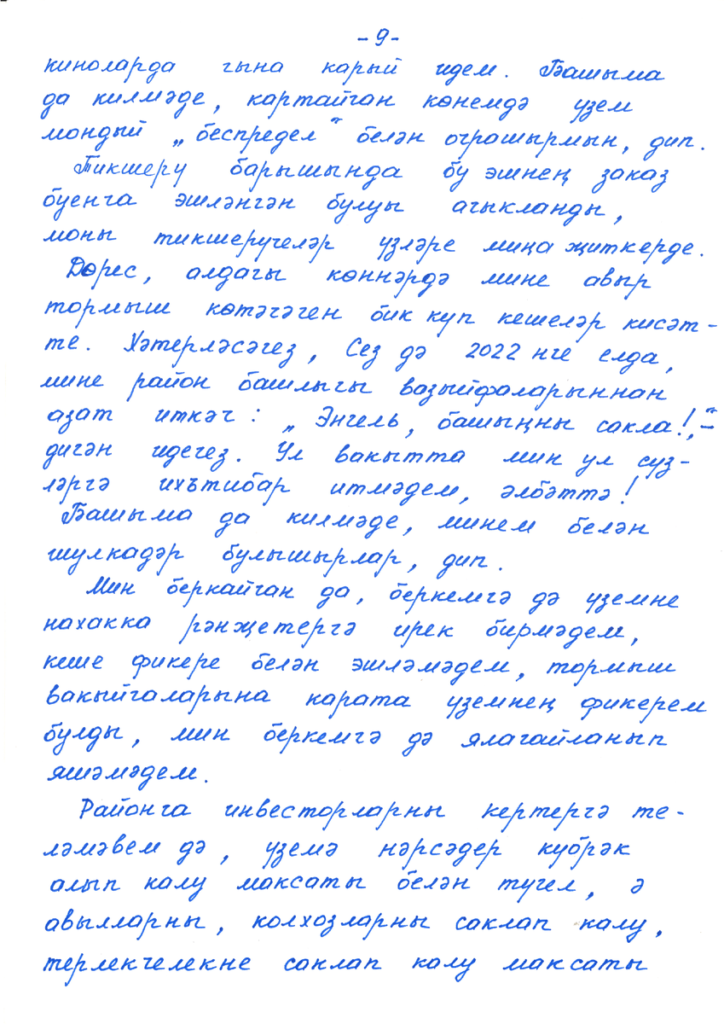 -9-
киноларда гына карый идем. Башыма
да килмәде, картайган көнемдә үзем
мондый „беспредел“ белән очрашырмын, дип.
Тикшерү барышында бу эшнең заказ
буенча эшләнгән булуы ачыкланды,
моны тикшерүчеләр үзләре миңа җиткерде.
Дөрес, алдагы көннәрдә мине авыр
тормыш көтәчәген бик күп кешеләр кисәт-
те. Хәтерләсәгез, Сез дә 2022 нче елда,
мине район башлыгы вазыйфаларыннан
азат иткәч: „Энгель, башыңны сакла!,“-
дигән идегез. Ул вакытта мин ул сүз-
ләргә ихътибар итмәдем, әлбәттә!
Башыма да килмәде, минем белән
шулкадәр булышырлар, дип.
Мин беркайчан да, беркемгә дә үземне
нахакка рәнҗетергә ирек бирмәдем,
кеше фикере белән эшләмәдем, тормыш
вакыйгаларына карата үземнең фикерем
булды, мин беркемгә дә ялагайланып
яшәмәдем.
Районга инвесторларны кертергә те-
ләмәвем дә, үземә нәрсәдер күбрәк
алып калу максаты белән түгел, ә
авылларны, колхозларны саклап калу,
терлекчелекне саклап калу максаты